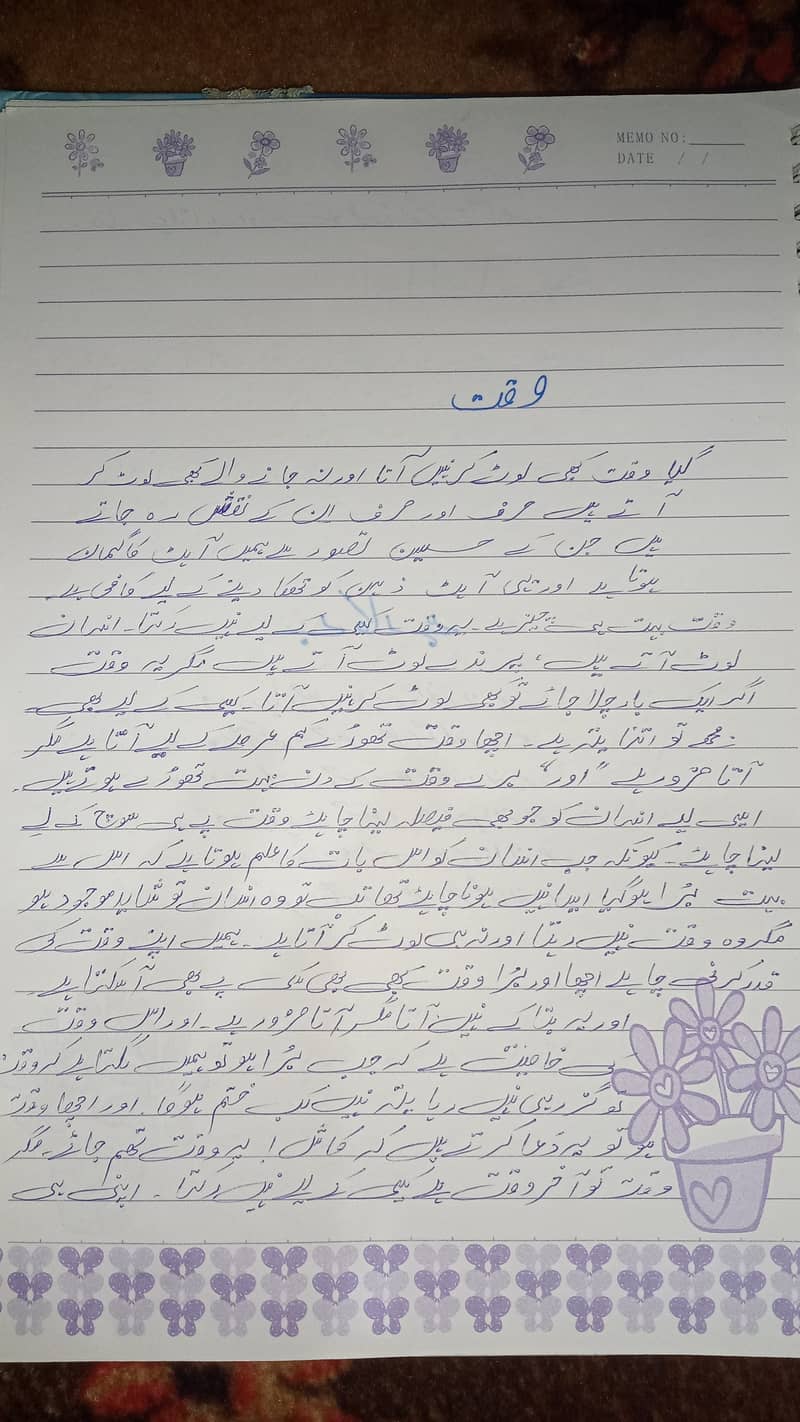 MEMO NO:
DATE / /
وقت
گیا وقت کبھی لوٹ کر نہیں آتا اور نہ جانے والے کبھی لوٹ کر
آتے ہیں صرف اور صرف ان کے نقش رہ جاتے
ہیں جن کے حسین تصور سے ہمیں آہٹ کا گمان
ہوتا ہے اور یہی آہٹ ذہن کو تھکا دینے کے لیے کافی ہے۔
وقت بہت ہی چیز ہے۔ یہ وقت کسی کے لیے نہیں رکتا۔ انسان
لوٹ آتے ہیں، پرندے لوٹ آتے ہیں مگر یہ وقت
اگر ایک بار چلا جائے تو کبھی لوٹ کر نہیں آتا۔ کسی کے لیے بھی۔
مجھے تو اتنا پتہ ہے۔ اچھا وقت تھوڑے کم عرصے کے لیے آتا ہے مگر
آتا ضرور ہے "اور" برے وقت کے دن بہت تھوڑے ہوتے ہیں۔
اسی لیے انسان کو جو بھی فیصلہ لینا چاہئے وقت پے ہی سوچ کے لے
لینا چاہئے۔ کیونکہ جب انسان کو اس بات کا علم ہوتا ہے کہ اس سے
بہت برا ہو گیا ایسا نہیں ہونا چاہئے تھا تب تو وہ انسان تو شاید موجود ہو
مگر وہ وقت نہیں رہتا اور نہ ہی لوٹ کر آتا ہے۔ ہمیں اپنے وقت کی
قدر کرنی چاہے اچھا اور برا وقت کبھی بھی کسی پے بھی آ سکتا ہے۔
اور یہ بتا کے نہیں آتا مگر آتا ضرور ہے۔ اور اس وقت
کی خاصیت ہے کہ جب برا ہو تو ہمیں لگتا ہے کہ وقت
تو گزر ہی نہیں رہا پتہ نہیں کب ختم ہوگا۔ اور اچھا وقت
ہو تو یہ دعا کرتے ہیں کہ کاش! یہ وقت تھم جائے۔ مگر
وقت تو آخر وقت ہے کسی کے لیے نہیں رکتا۔ اپنی ہی